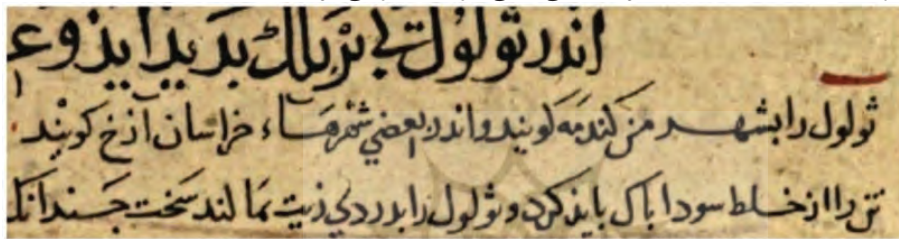 اندر ثولول کی بر پلک بدید اید وع
ثولول را بشهر من کندمه کویند و اندر بعضی شهرهاء خراسان آزخ کویند
تن را از خلط سودا باک باید کرد و ثولول را بدردی زیت بمالند سخت جندانک